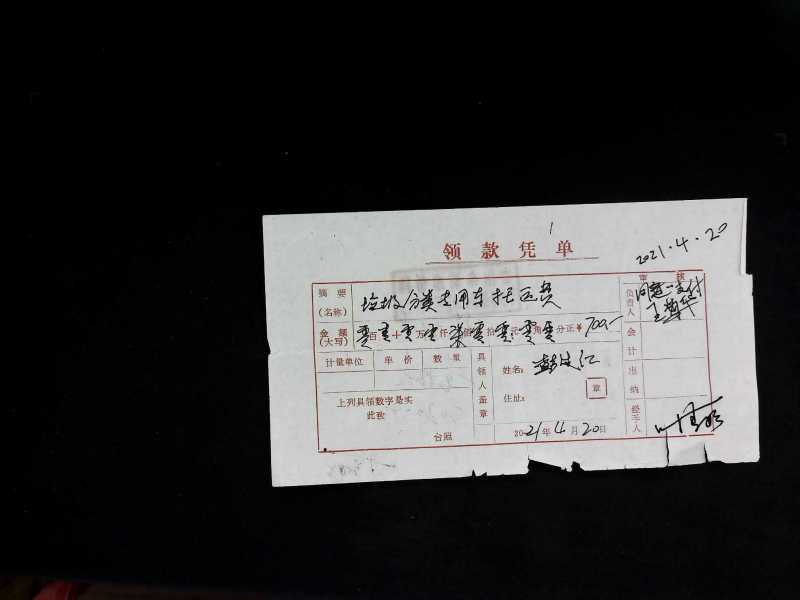 1
领款凭单
2021.4.20
审核
摘要
(名称)
垃圾分类专用车托运费
负责人
同意支付
金额
(大写)
零百零十零万零仟柒佰零拾零元零角零分正¥700—
会计
计量单位 单价 数量
具领人盖章
姓名:
章
住址:
出纳
上列具领数字是实
此致
台照
2021年4月20日
经手人